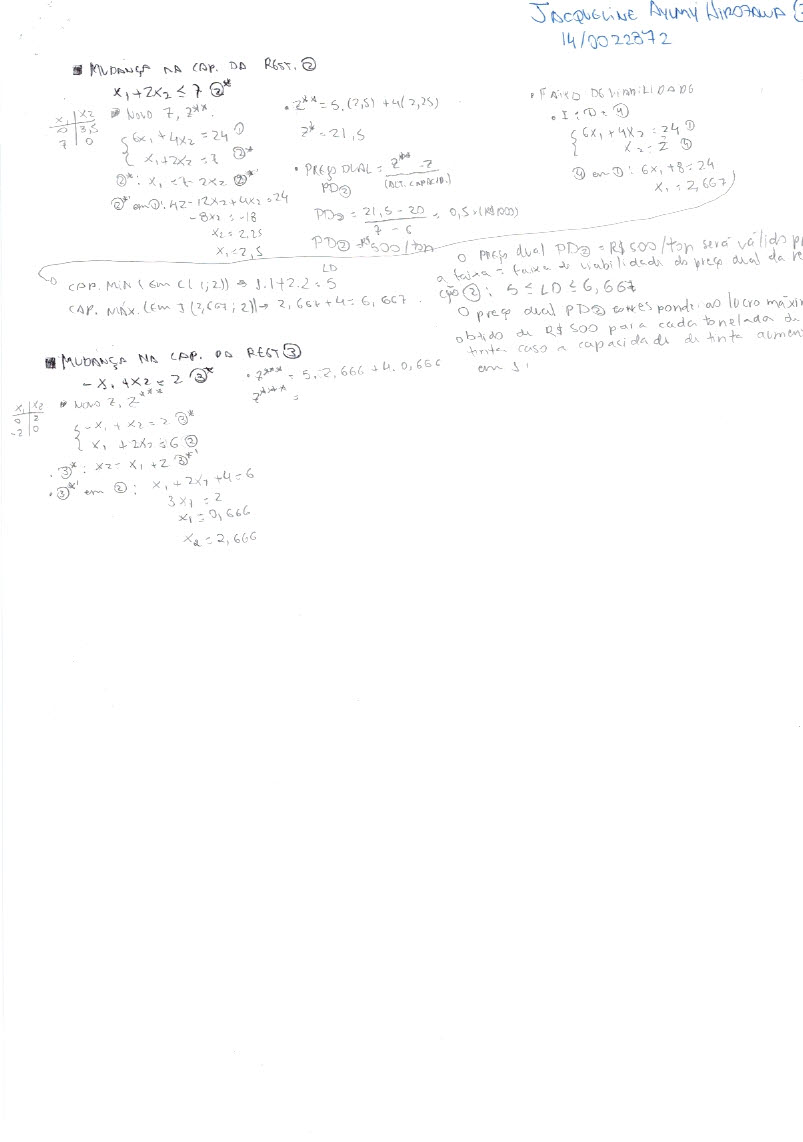 JACQUELINE AYUMY HIROZAWA
14/0022872
MUDANÇA NA CAP. DA REST. ②
x₁ + 2x₂ ≤ 7 ②*
x₁ | x₂
0 | 3,5
7 | 0
NOVO Z, Z**.
{ 6x₁ + 4x₂ = 24 ①
x₁ + 2x₂ = 7 ②*
②*: x₁ = 7 - 2x₂ ②*'
②*' em ①: 42 - 12x₂ + 4x₂ = 24
-8x₂ = -18
x₂ = 2,25
x₁ = 2,5
• Z** = 5.(2,5) + 4(2,25)
Z* = 21,5
• PREÇO DUAL = Z** - Z
PD② (ALT. CAPACID.)
PD② = 21,5 - 20 = 0,5 × (R$1000)
7 - 6
PD② = R$ 500/ton
• FAIXA DE VIABILIDADE
• I: ① = ④
{ 6x₁ + 4x₂ = 24 ①
x₂ = 2 ④
④ em ①: 6x₁ + 8 = 24
x₁ = 2,667
LD
CAP. MÍN (em C(1;2)) → 1.1 + 2.2 = 5
CAP. MÁX. (em I (2,667; 2)) → 2,667 + 4 = 6,667.
O preço dual PD② = R$ 500/ton será válido p
a faixa = faixa de viabilidade do preço dual da re
ção ②: 5 ≤ LD ≤ 6,667
O preço dual PD② corresponde ao lucro máxi
obtido de R$ 500 para cada tonelada de
tinta caso a capacidade de tinta aumen
em 1.
MUDANÇA NA CAP. DA REST ③
-x₁ + x₂ = 2 ③*
x₁ | x₂
0 | 2
-2 | 0
NOVO Z, Z***
{ -x₁ + x₂ = 2 ③*
x₁ + 2x₂ = 6 ②
• ③*: x₂ = x₁ + 2 ③*'
• ③*' em ②: x₁ + 2x₁ + 4 = 6
3x₁ = 2
x₁ = 0,666
x₂ = 2,666
• Z*** = 5.2,666 + 4.0,666
Z*** =